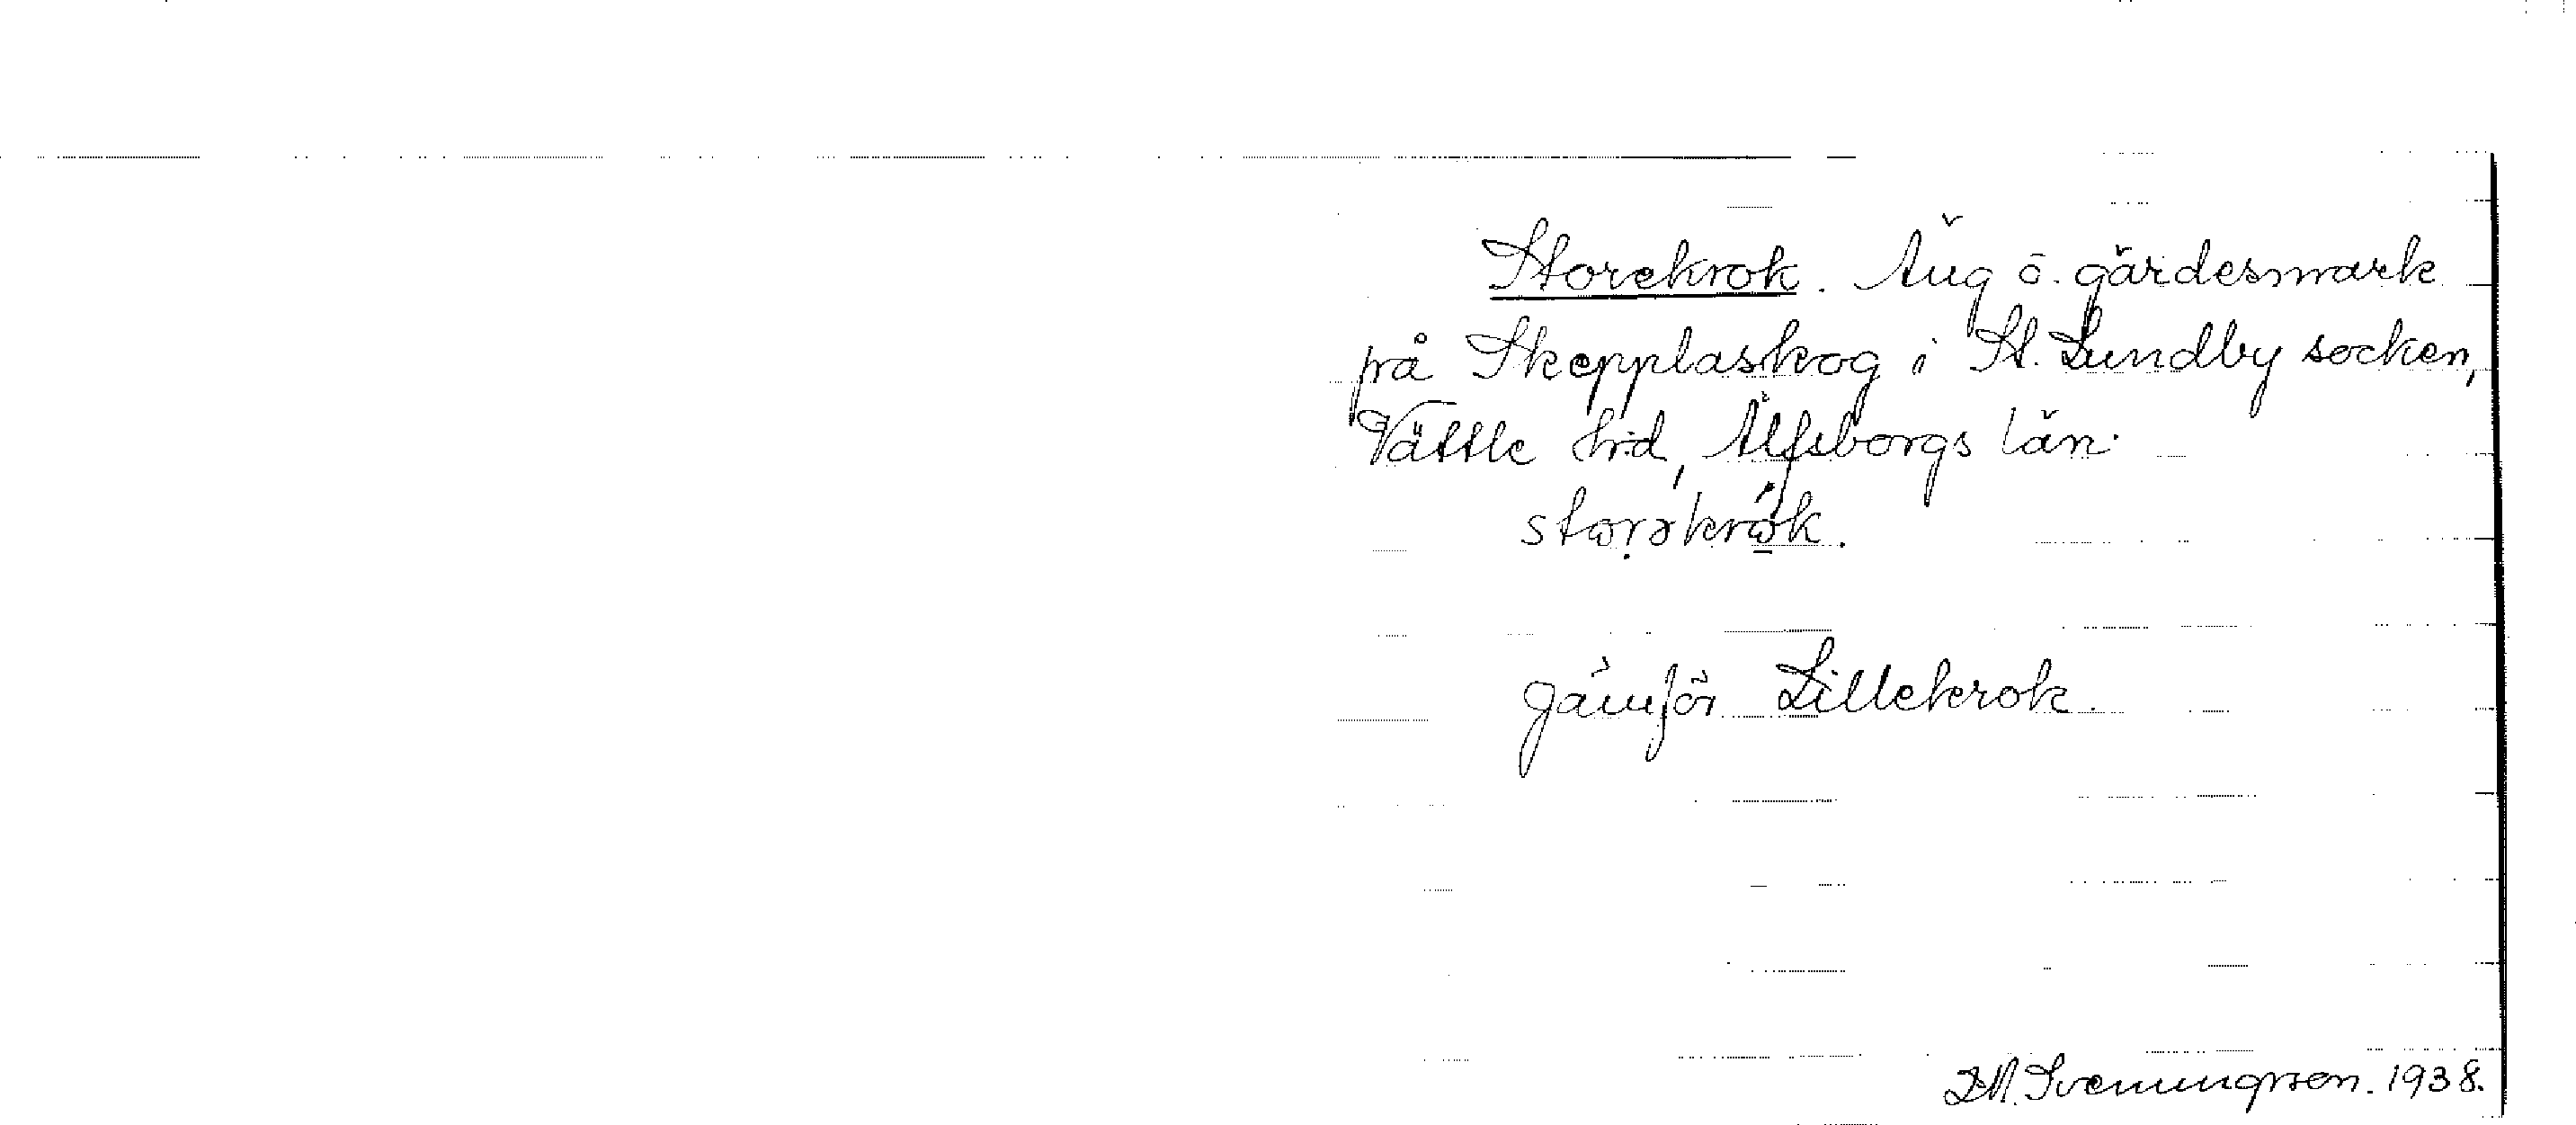 Storekrok. Äng ö. gärdesmark
på Skepplaskog i St. Lundby socken,
Vättle hrd, Älfsborgs län.
Jämför Lillekrok.
Svenungsson. 1938.